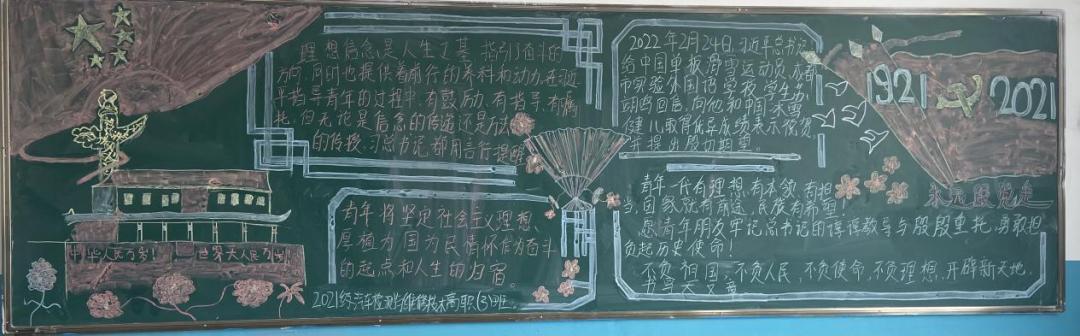 理想信念是人生之基,指引奋斗的
方向,同时也提供着前行的养料和动力,在习近
平指导青年的过程中,有鼓励、有指导、有嘱
托,但无论是信念的传递还是方法
的传授,习总书记都用言行提醒
青年将坚定社会主义理想、
厚植为国为民情怀作为奋斗
的起点和人生的归宿。
中华人民万岁!
世界大人民万岁
2022年2月24日,习近平总书记
给中国单板滑雪运动员、成都
市实验外国语学校学生苏
翊鸣回信,向他和中国冰雪
健儿取得优异成绩表示祝贺
并提出殷切期望。
1921
2021
永远跟党走
青年一代有理想,有本领,有担
当,国家就有前途,民族有希望!
愿青年朋友牢记总书记的谆谆教导与殷殷重托,勇敢担
负起历史使命!
不负祖国,不负人民,不负使命,不负理想,开辟新天地,
书写大文章